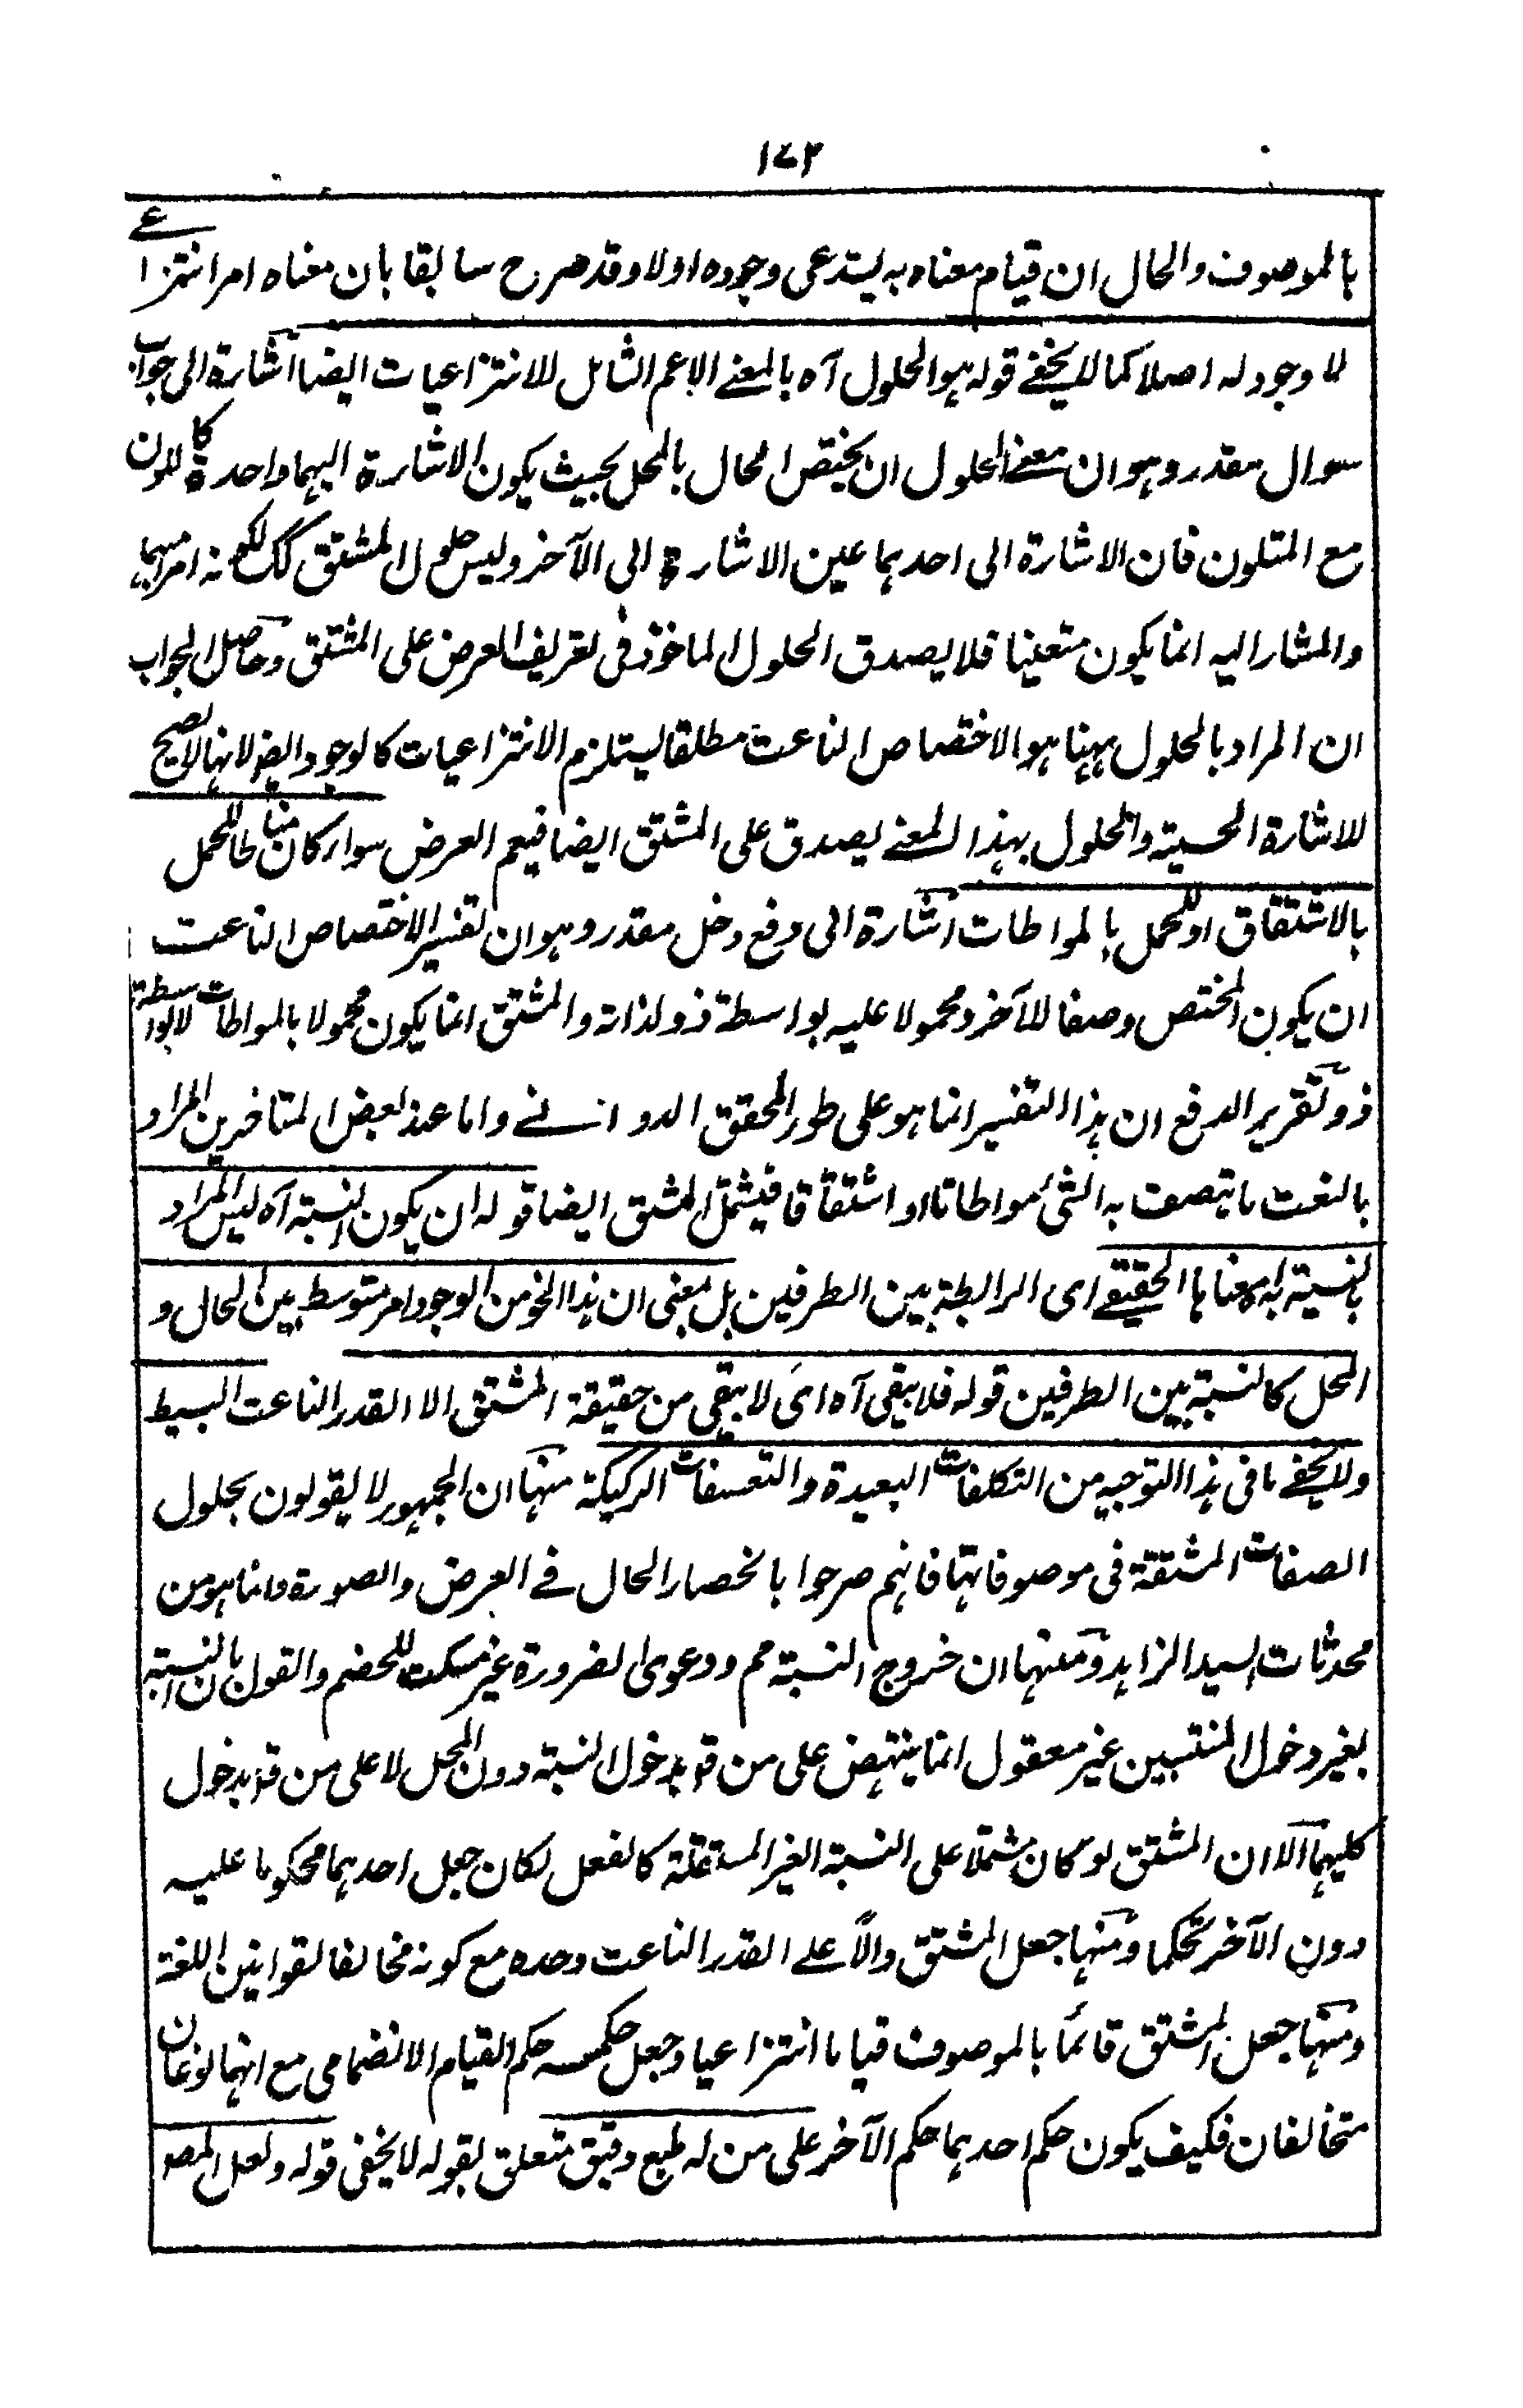 ١٧٢
بالموصوف والحال ان قيام معناه به يستدعى وجوده اولا وقد صرح سابقا بان معناه امر انتزاعے
لا وجود له اصلا كما لا يخفے قوله هو الحلول آه بالمعنے الاعم الشامل للانتزاعيات ايضا اشارة الى جواب
سوال مقدر وهو ان معنے الحلول ان يختص الحال بالمحل بحيث يكون الاشارة اليهما واحدة كاللون
مع المتلون فان الاشارة الى احدهما عين الاشارة الى الآخر وليس حلول المشتق كك لكونه امرا مبهما
والمشار اليه انما يكون متعينا فلا يصدق الحلول الماخوذ فى تعريف العرض على المشتق وحاصل الجواب
ان المراد بالحلول ههنا هو الاختصاص الناعت مطلقا ليستلزم الانتزاعيات كالوجود ايضا لانها لا تصح
للاشارة الحسية والحلول بهذا المعنے يصدق على المشتق ايضا فيعم العرض سواء كان مناطا للحمل
بالاشتقاق او للحمل بالمواطات اشارة الى دفع دخل مقدر وهو ان تفسير الاختصاص الناعت
ان يكون المختص وصفا للآخر ومحمولا عليه بواسطة ذو لذاته والمشتق انما يكون محمولا بالمواطات لا بواسطة
ذو وتقرير الدفع ان هذا التفسير انما هو على طور المحقق الدوانے واما عند بعض المتاخرين المراد
بالنعت ما يتصف به الشئ مواطاتا او اشتقاقا فيشمل المشتق ايضا قوله ان يكون النسبة آه ليس المراد
بالنسبة معناها الحقيقے اى الرابطة بين الطرفين بل بمعنى ان هذا النحو من الوجود امر متوسط بين الحال و
المحل كالنسبة بين الطرفين قوله فلا يبقى آه اى لا يبقى من حقيقة المشتق الا القدر الناعت البسيط
ولا يخفے ما فى هذا التوجيه من التكلفات البعيدة والتعسفات الركيكة منها ان الجمهور لا يقولون بحلول
الصفات المشتقة فى موصوفاتها فانهم صرحوا بانحصار الحال فے العرض والصورة وانما هو من
محدثات السيد الزاهد ومنها ان خروج النسبة مم ودعوى الضرورة غير مسكت للخصم والقول بان النسبة
بغير دخول المنتسبين غير معقول انما ينتهض على من قد بدخول النسبة دون المحل لا على من قد بدخول
كليهما الا ان المشتق لو كان مشتملا على النسبة الغير المستقلة كالفعل لكان جعل احدهما محكوما عليه
دون الآخر تحكما ومنها جعل المشتق دالاً علے القدر الناعت وحده مع كونه مخالفا لقوانين اللغة
ومنها جعل المشتق قائماً بالموصوف قياما انتزاعيا وجعل حكمه حكم القيام الانضمامى مع انهما نوعان
متخالفان فكيف يكون حكم احدهما حكم الآخر على من له طبع دقيق متعلق بقوله لا يخفى قوله ولعل المص